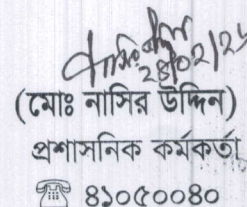 ২৪/০২/২৫
(মোঃ নাসির উদ্দিন)
প্রশাসনিক কর্মকর্তা
৪১০৫০০৪০